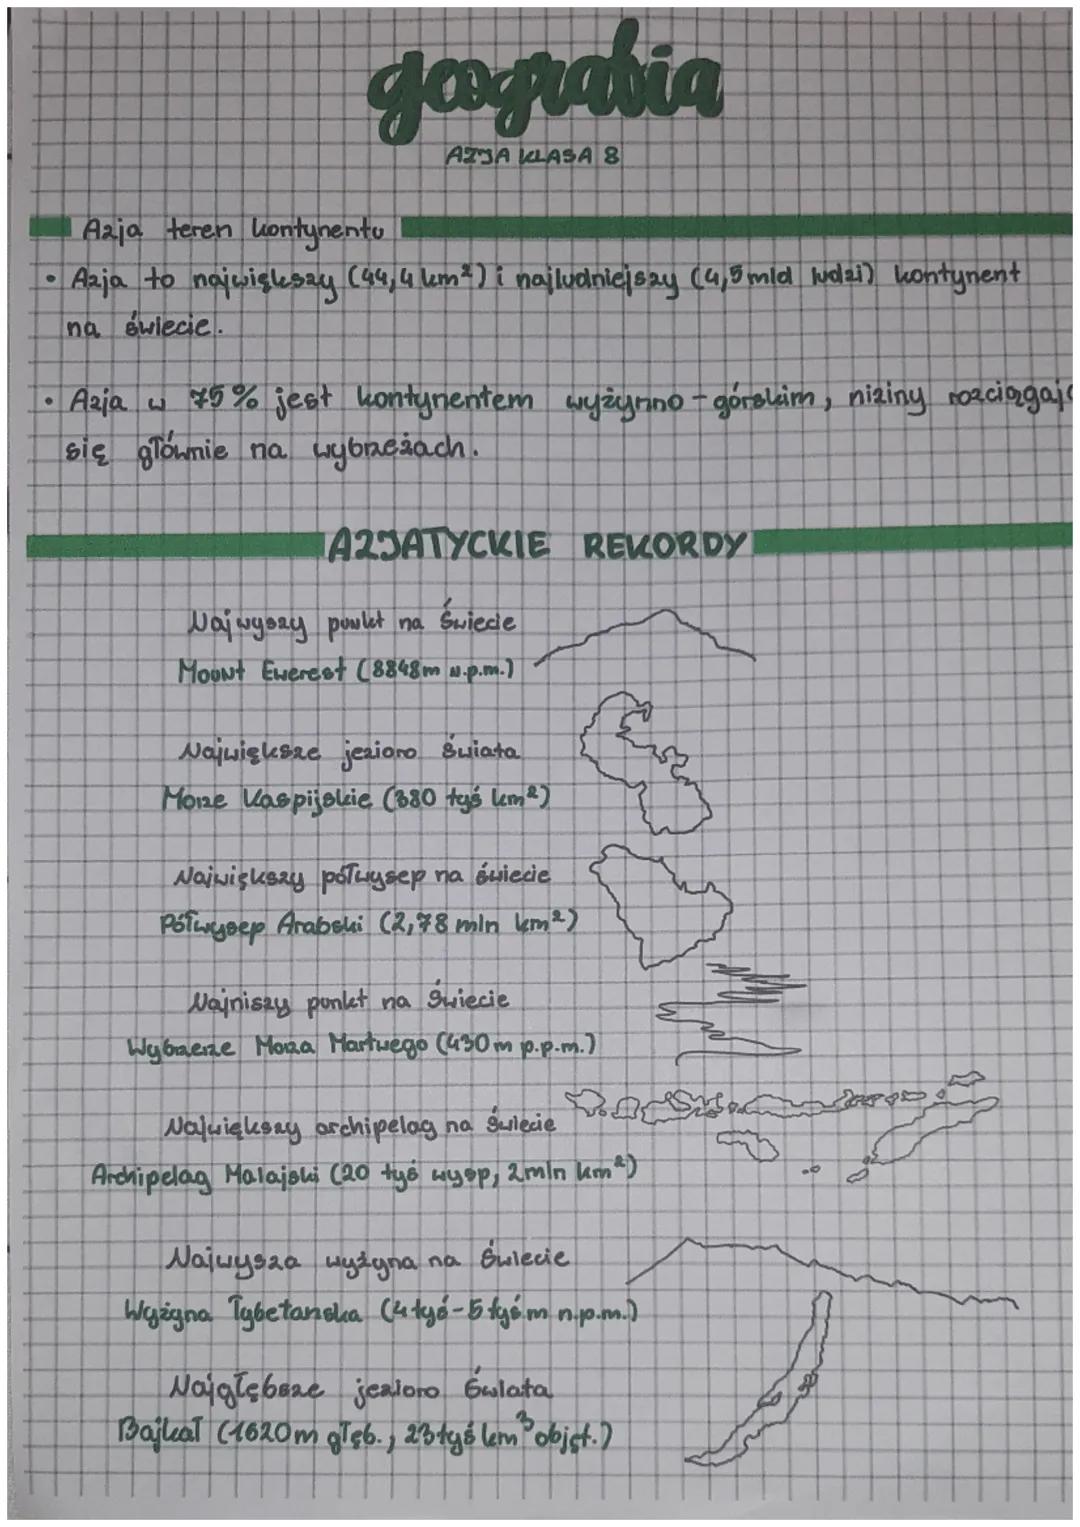 geografia
AZJA KLASA 8
Azja teren kontynentu
• Azja to największy (44,4 km²) i najludniejszy (4,5 mld ludzi) kontynent
na świecie.
• Azja w 75% jest kontynentem wyżynno-górskim, niziny rozciągają
się głównie na wybrzeżach.
AZJATYCKIE REKORDY
Najwyszy punkt na Świecie
Mount Ewerest (8848m n.p.m.)
Największe jezioro świata
Morze Kaspijskie (380 tyś km²)
Największy półwysep na świecie
Półwysep Arabski (2,78 mln km²)
Najniszy punkt na Świecie
Wybrzerze Morza Martwego (430m p.p.m.)
Największy archipelag na Świecie
Archipelag Malajski (20 tyś wysp, 2mln km²)
Najwysza wyżyna na Świecie
Wyżyna Tybetańska (4 tyś-5 tyś m n.p.m.)
Najgłębsze jezioro Świata
Bajkał (1620m głęb., 23 tyś km³ objęt.)